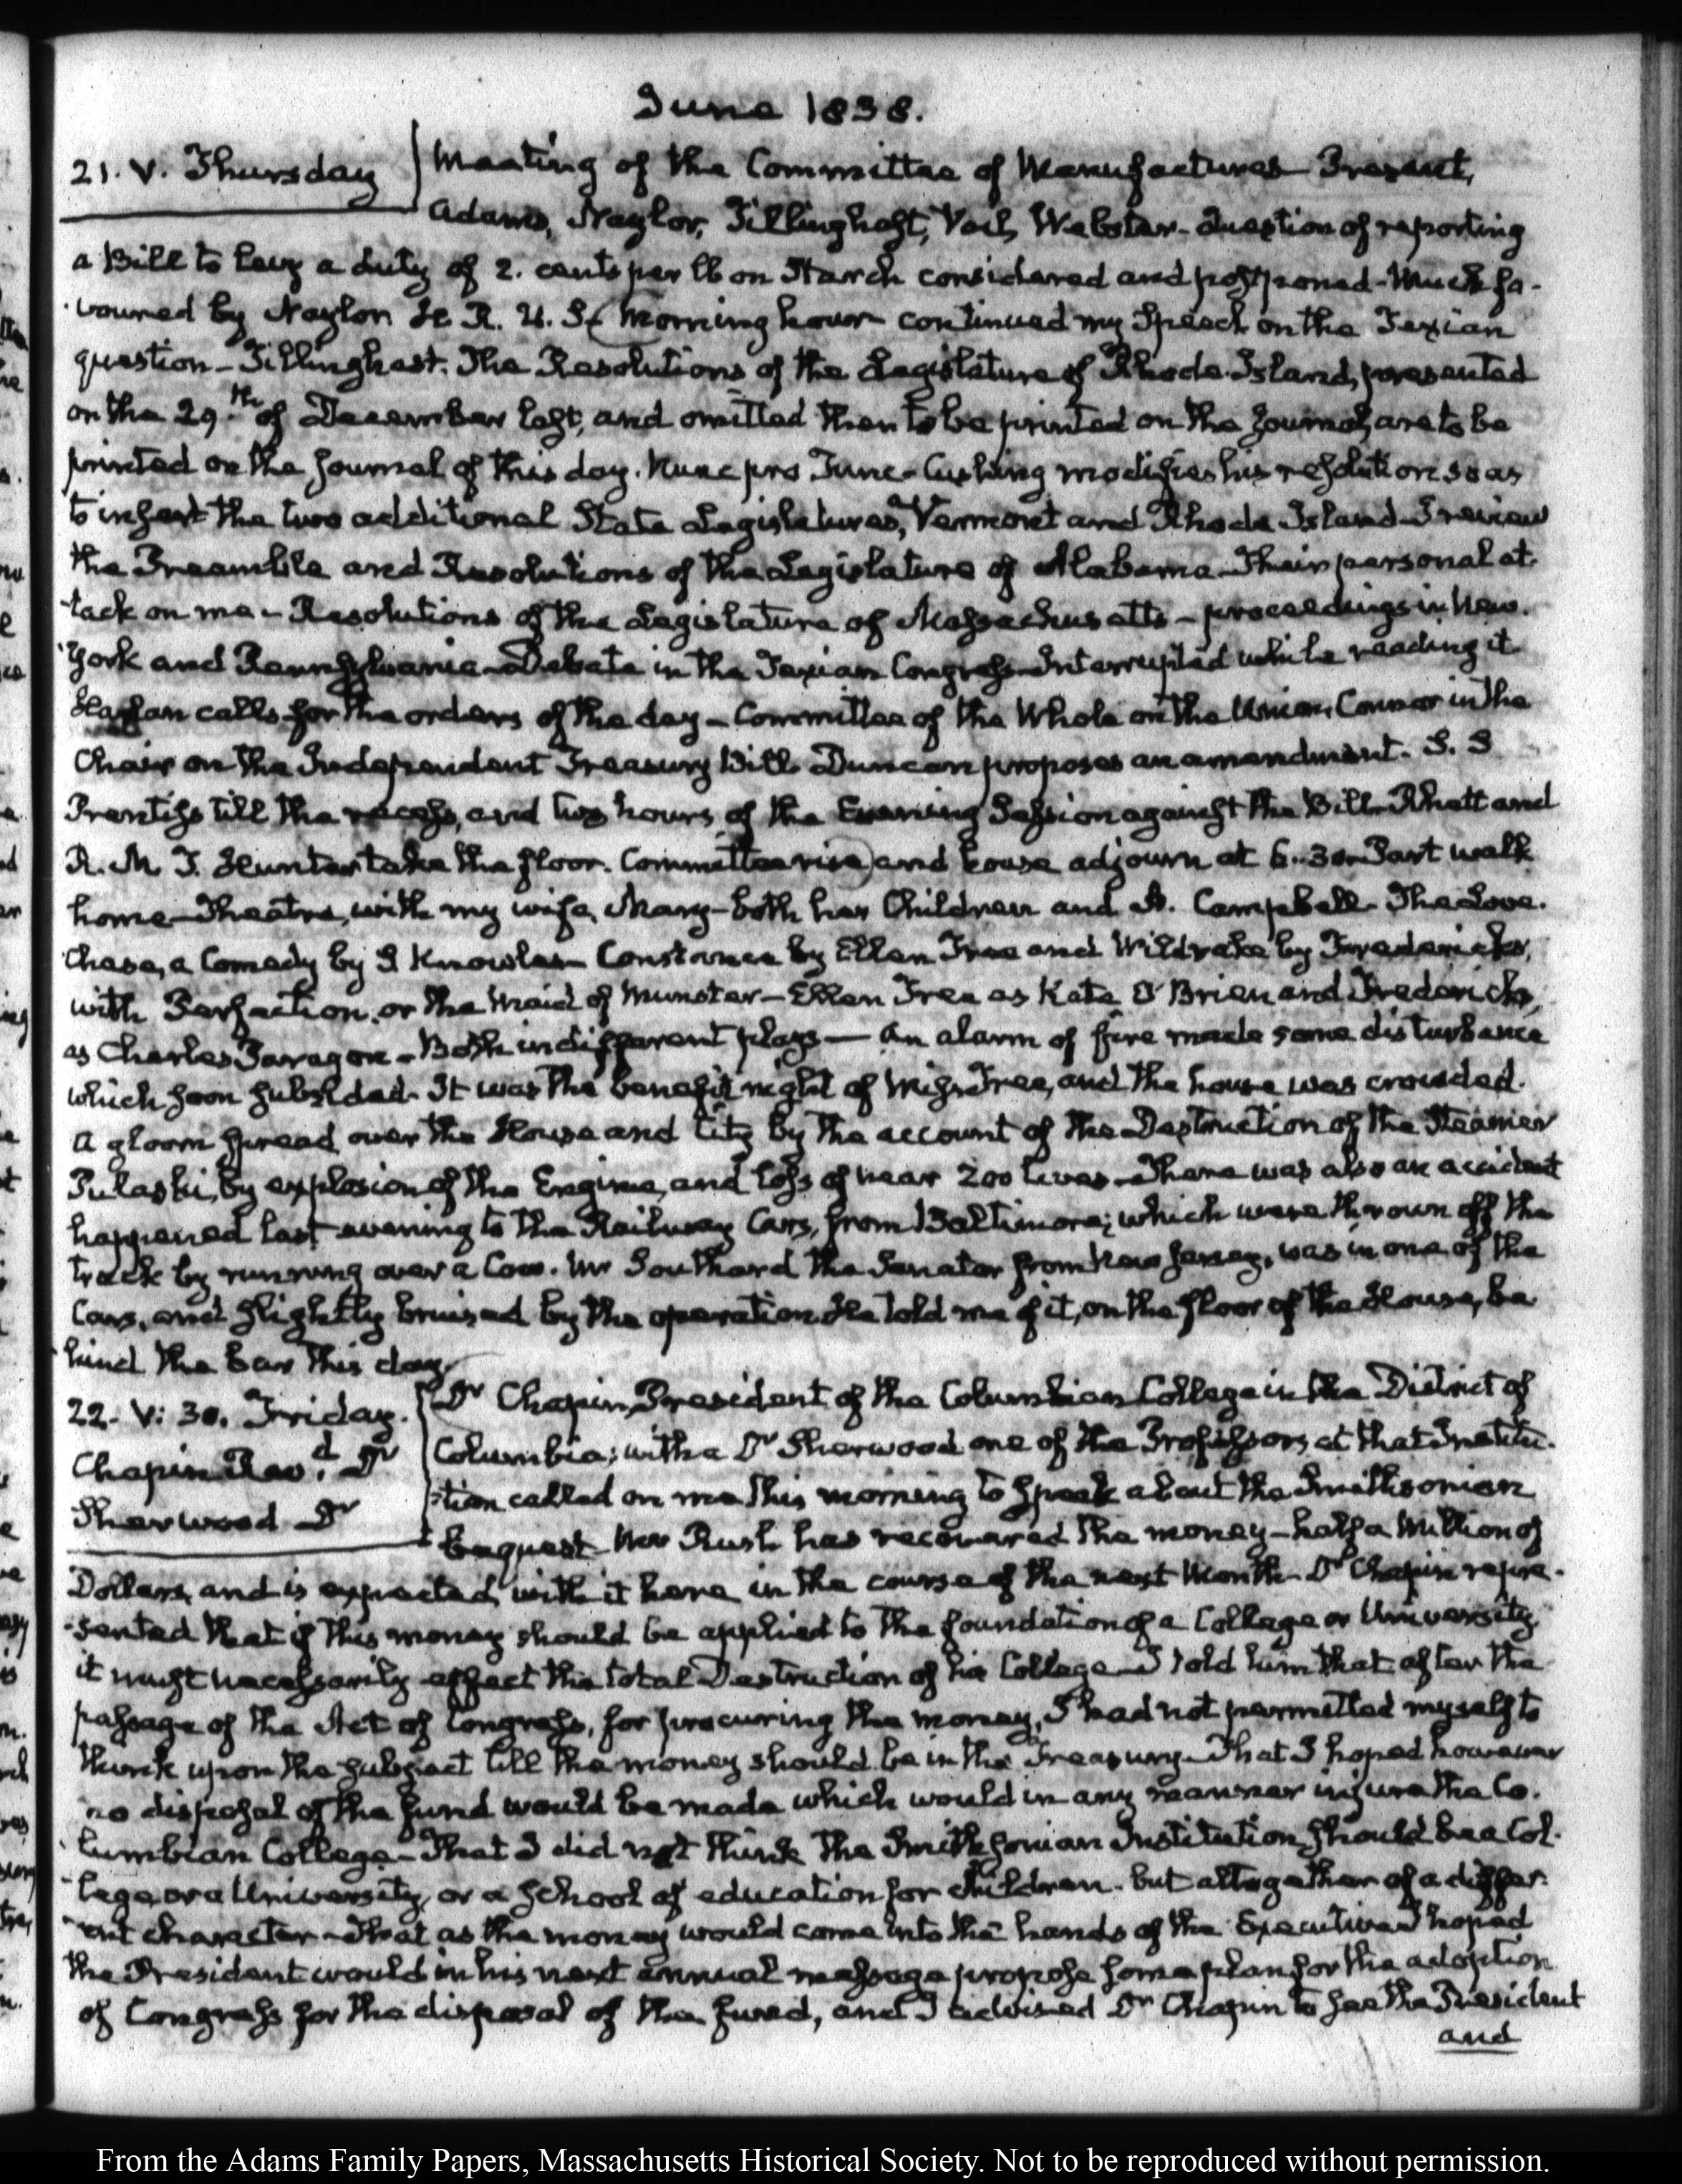 June 1838.
21. V. Thursday
Meeting of the Committee of Manufactures Present,
Adams, Naylor, Tillinghast, Vail, Webster - Question of reporting
a Bill to levy a duty of 2. cents per lb on Starch considered and postponed - Much fa-
voured by Naylor H. R. U. S. Morning hour continued my Speech on the Texian
question - Tillinghast. The Resolutions of the Legislature of Rhode-Island, presented
on the 29th of December last, and omitted then to be printed on the Journal, are to be
printed on the Journal of this day. Nunc pro Tunc - Cushing modifies his resolution so as
to insert the two additional State Legislatures, Vermont and Rhode Island - I review
the Preamble and Resolutions of the Legislature of Alabama - Their personal at-
tack on me - Resolutions of the Legislature of Massachusetts - proceedings in New-
York and Pennsylvania - Debate in the Texian Congress - Interrupted while reading it
Harlan calls for the orders of the day - Committee of the Whole on the Union, Connor in the
Chair on the Independent Treasury Bill. Duncan proposes an amendment. S. S
Prentiss till the recess, and two hours of the Evening Session against the Bill. Rhett and
R. M. T. Hunter take the floor. Committee rise and house adjourn at 6..30. Part walk
home - Theatre, with my wife, Mary - both her Children and A. Campbell. The Love-
Chase, a Comedy by S Knowles - Constance by Ellen Tree and Wildrake by Fredericks,
with Perfection, or the Maid of Munster - Ellen Tree as Kate O'Brien and Fredericks,
as Charles Paragon - Both indifferent plays — An alarm of fire made some disturbance
which soon subsided. It was the benefit night of Miss Tree, and the house was crowded.
A gloom spread over the House and City by the account of the Destruction of the Steamer
Pulaski, by explosion of the Engine, and loss of near 200 lives - There was also an accident
happened last evening to the Railway Cars, from Baltimore; which were thrown off the
track by running over a Cow. Mr Southard the Senator from New Jersey, was in one of the
Cars, and slightly bruised by the operation. He told me of it, on the floor of the House, be-
hind the bar this day.
22. V: 30. Friday.
Chapin Revd. Dr
Sherwood Dr
Dr Chapin, President of the Columbian College in the District of
Columbia; with a Dr Sherwood one of the Professors, at that Institu-
tion called on me this morning to speak about the Smithsonian
bequest - Mr Rush has recovered the money - half a Million of
Dollars, and is expected with it here in the course of the next Month - Dr Chapin repre-
sented that if this money should be applied to the foundation of a College or University
it must necessarily effect the total Destruction of his College - I told him that after the
passage of the Act of Congress, for procuring the money, I had not permitted myself to
think upon the subject till the money should be in the Treasury - That I hoped however
no disposal of the fund would be made which would in any manner injure the Co-
lumbian College - That I did not think the Smithsonian Institution should be a Col-
lege or a University, or a school of education for children - but altogether of a differ-
ent character - That as the money would come into the hands of the Executive I hoped
the President would in his next annual message propose some plan for the adoption
of Congress for the disposal of the fund, and I advised Dr Chapin to see the President
and
From the Adams Family Papers, Massachusetts Historical Society. Not to be reproduced without permission.